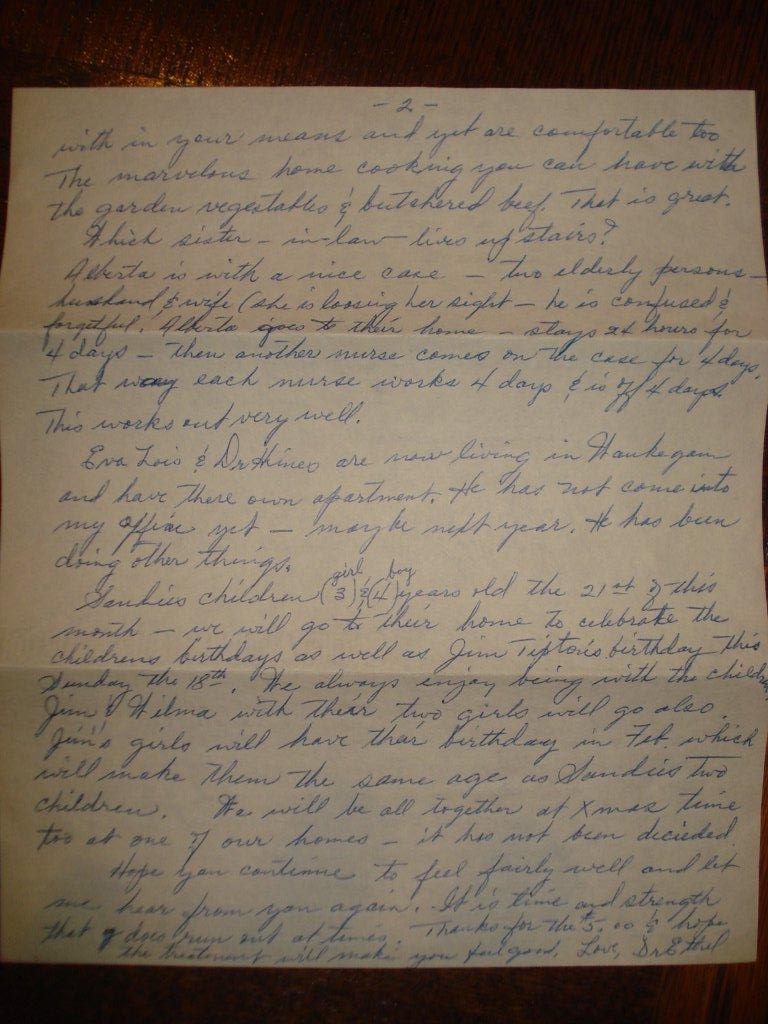 - 2 -
with in your means and yet are comfortable too
The marvelous home cooking you can have with
the garden vegestables & butchered beef. That is great.
Which sister - in-law lives up stairs?
Alberta is with a nice case - two elderly persons -
husband & wife (she is loosing her sight - he is confused &
forgetful. Alberta goes to their home - stays 24 hours for
4 days - then another nurse comes on the case for 4 days.
That way each nurse works 4 days & is off 4 days.
This works out very well.
Eva Lois & Dr Hines are now living in Waukegan
and have there own apartment. He has not come into
my office yet - maybe next year. He has been
doing other things.
girl boy
Sandies children (3) & (4) years old the 21st of this
month - we will go to their home to celebrate the
childrens birthdays as well as Jim Tipton's birthday this
Sunday the 18th. We always enjoy being with the children
Jim & Wilma with their two girls will go also.
Jim's girls will have their birthday in Feb. which
will make them the same age as Sandies two
children. We will be all together at Xmas time
too at one of our homes - it has not been decieded.
Hope you continue to feel fairly well and let
me hear from you again. It is time and strength
that does run out at times. Thanks for the $5.00 & hope
the treatment will make you feel good. Love, Dr Ethel